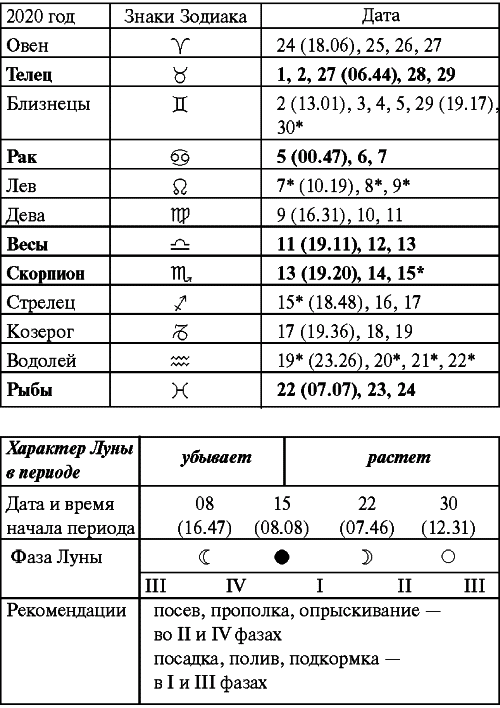 2020 год Знаки Зодиака Дата
Овен ♈ 24 (18.06), 25, 26, 27
Телец ♉ 1, 2, 27 (06.44), 28, 29
Близнецы ♊ 2 (13.01), 3, 4, 5, 29 (19.17),
30*
Рак ♋ 5 (00.47), 6, 7
Лев ♌ 7* (10.19), 8*, 9*
Дева ♍ 9 (16.31), 10, 11
Весы ♎ 11 (19.11), 12, 13
Скорпион ♏ 13 (19.20), 14, 15*
Стрелец ♐ 15* (18.48), 16, 17
Козерог ♑ 17 (19.36), 18, 19
Водолей ♒ 19* (23.26), 20*, 21*, 22*
Рыбы ♓ 22 (07.07), 23, 24
Характер Луны
в периоде убывает растет
Дата и время 08 15 22 30
начала периода (16.47) (08.08) (07.46) (12.31)
Фаза Луны ☾ ● ☽ ○
III IV I II III
Рекомендации посев, прополка, опрыскивание —
во II и IV фазах
посадка, полив, подкормка —
в I и III фазах